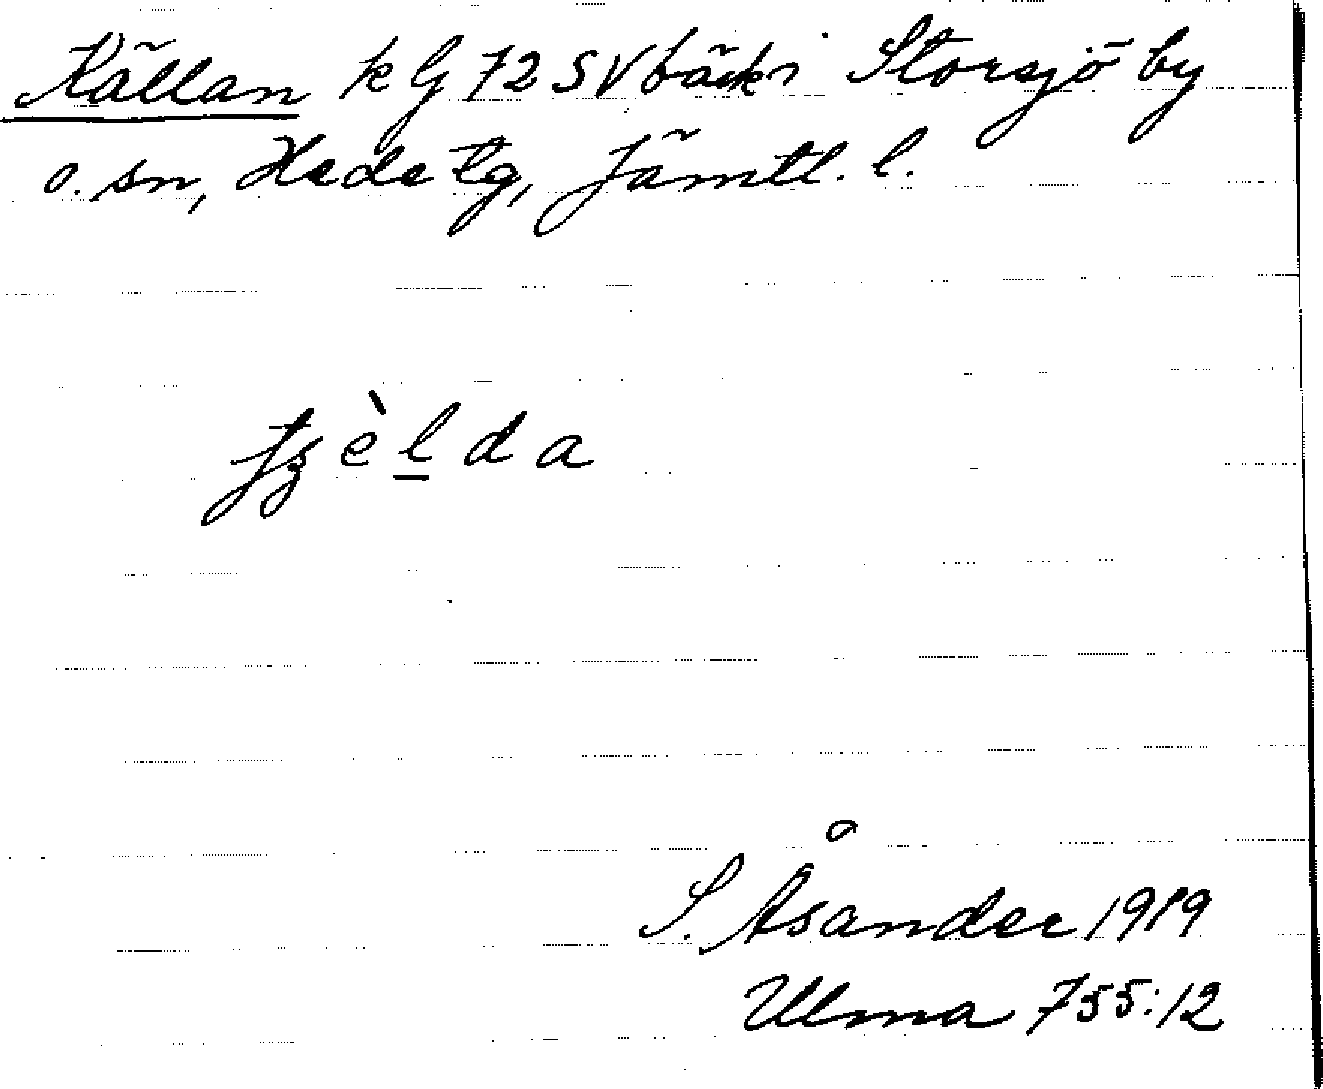 Källan k G 72 SV bäck i Storsjö by
o. sn, Hede tg, Jämtl. l.
èlda
S. Åsander 1919
Ulma 755:12